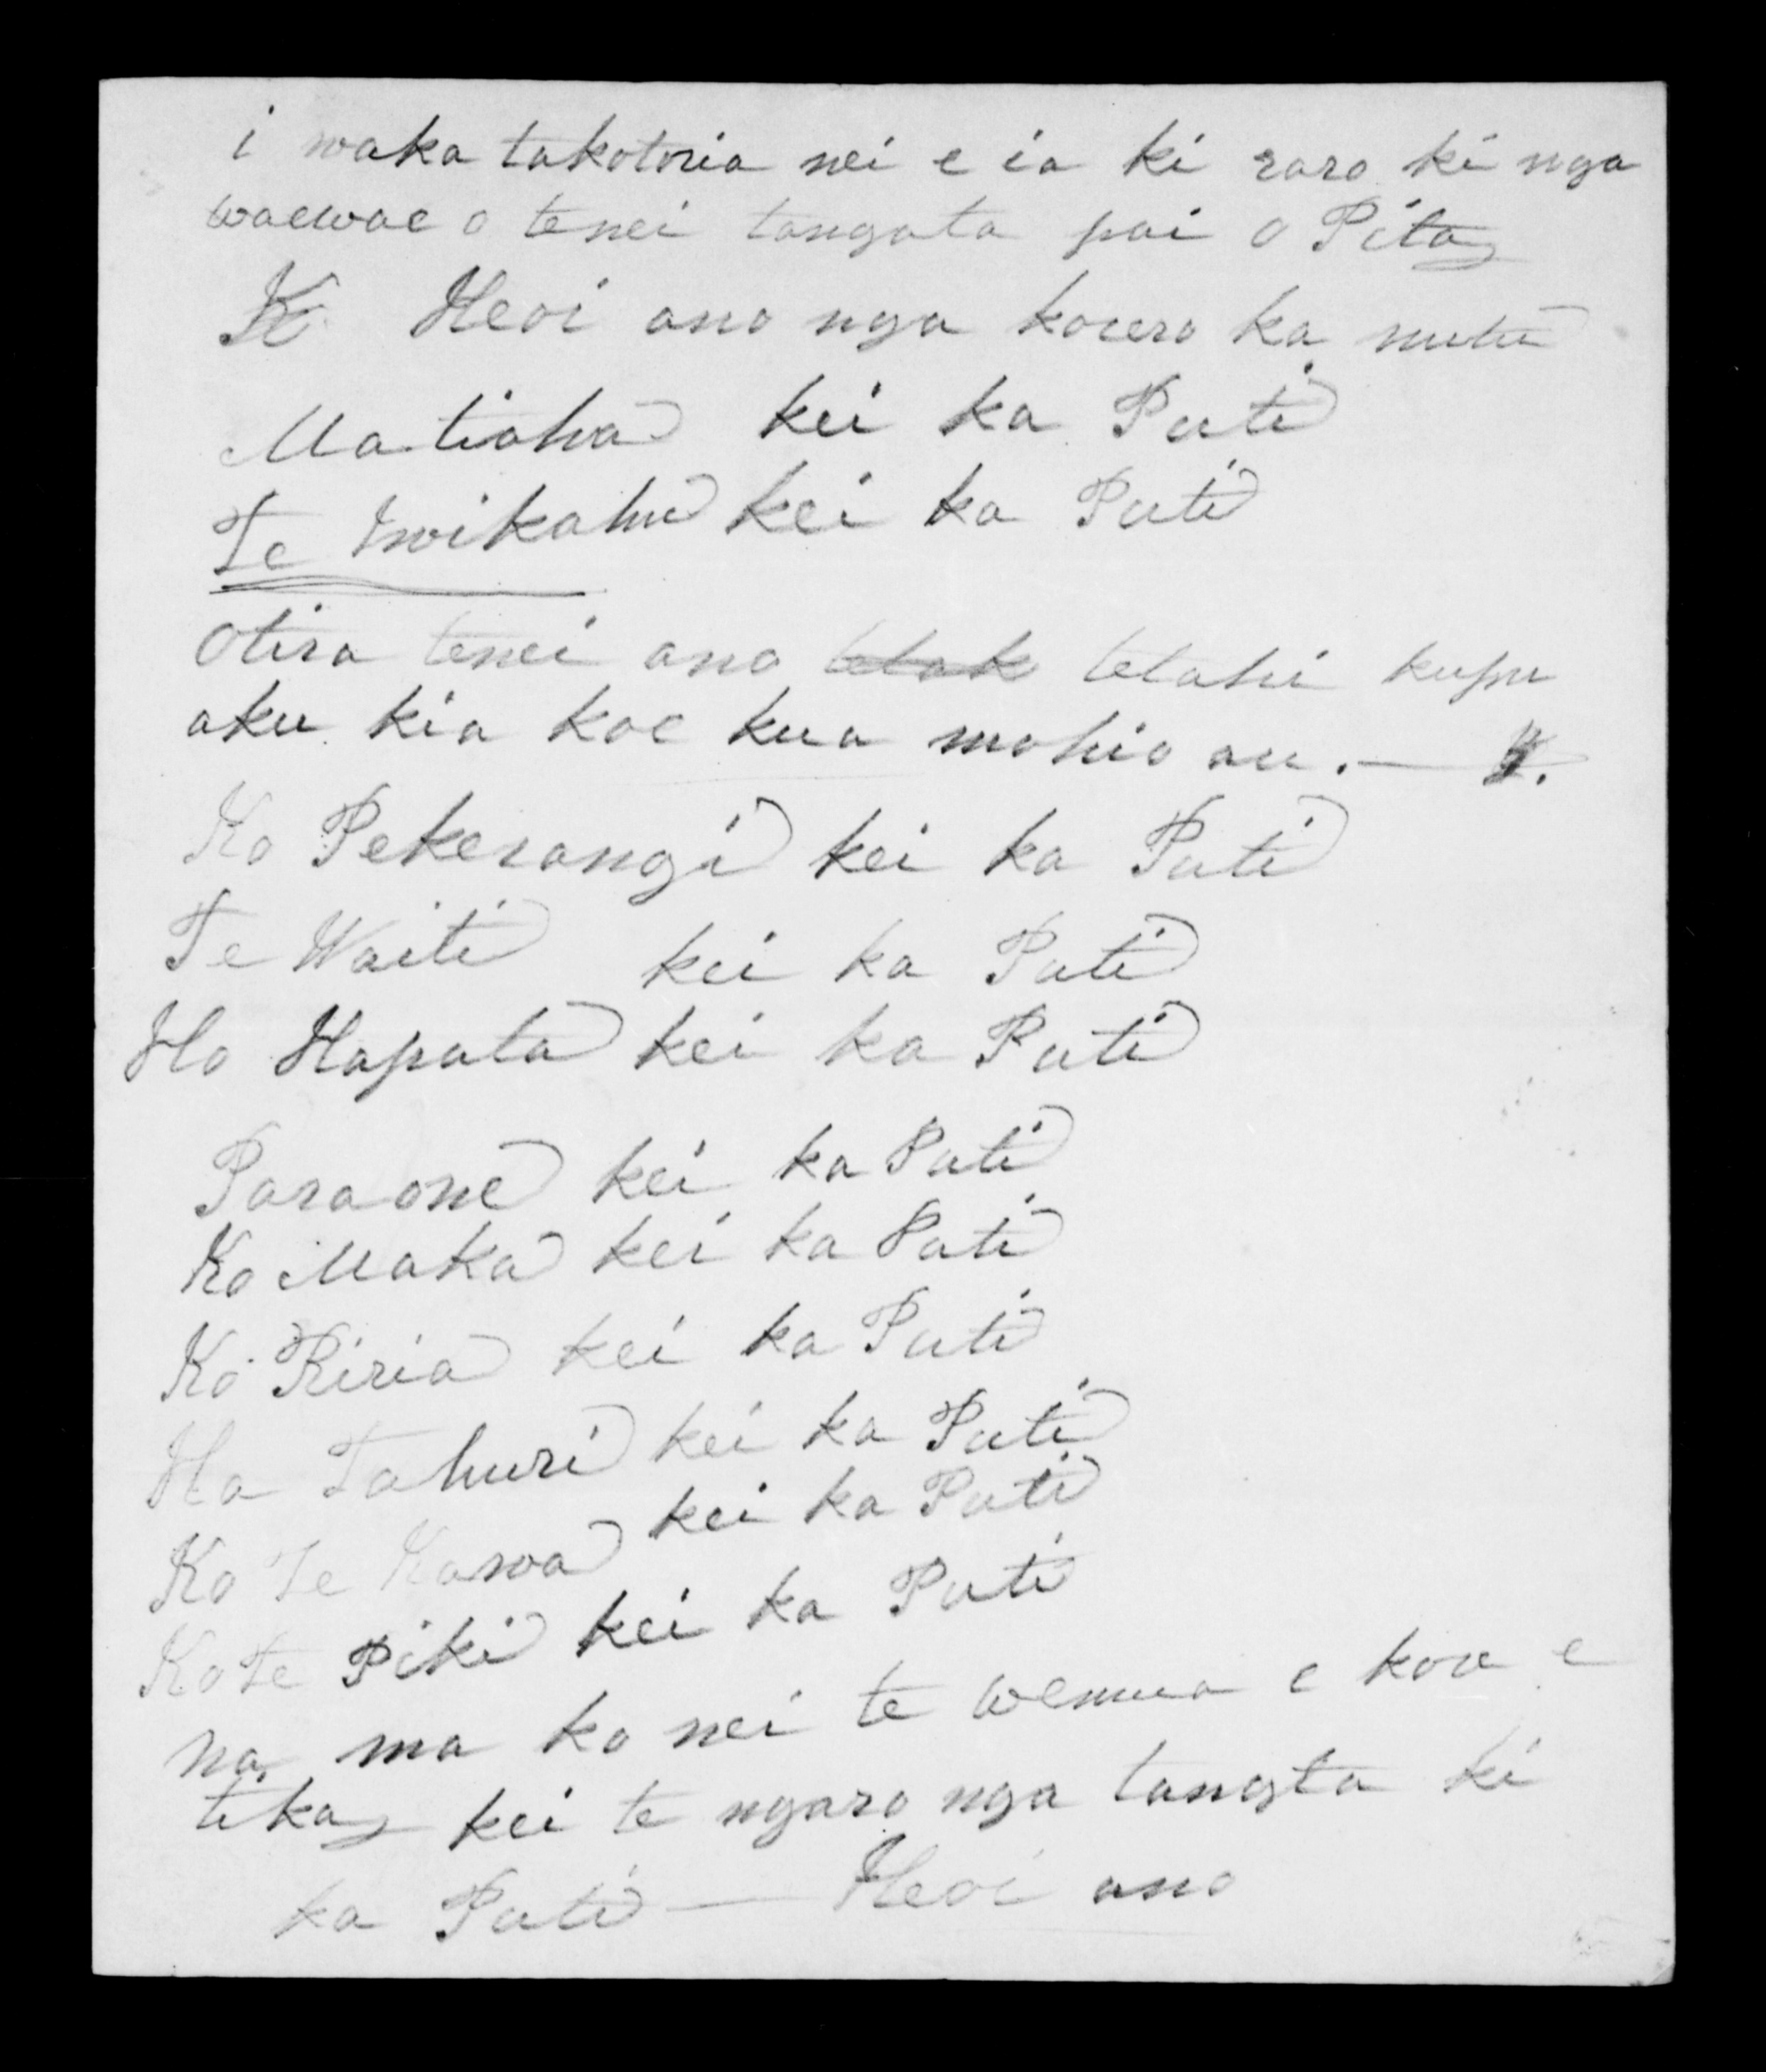 i waka takotoria nei e ia ki raro ki nga
waewae o tenei tangata pai o Pita
Heoi ano nga korero ka mutu
Matiaha kei ka Puti
Te Iwikahu kei ka Puti
Otira tenei ano tetahi kupu
aku kia koe kua mohio au.—
Ko Pekerangi kei ka Puti
Te Waiti kei ka Puti
Ho Hapata kei ka Puti
Paraone kei ka Puti
Ko Maka kei ka Puti
Ko Riria kei ka Puti
Ha Tahuri kei ka Puti
Ko Te Kawa kei ka Puti
Ko te Piki kei ka Puti
na ma ko nei te wenua e kore e
tika kei te ngaro nga tangta ki
ka Puti — Heoi ano